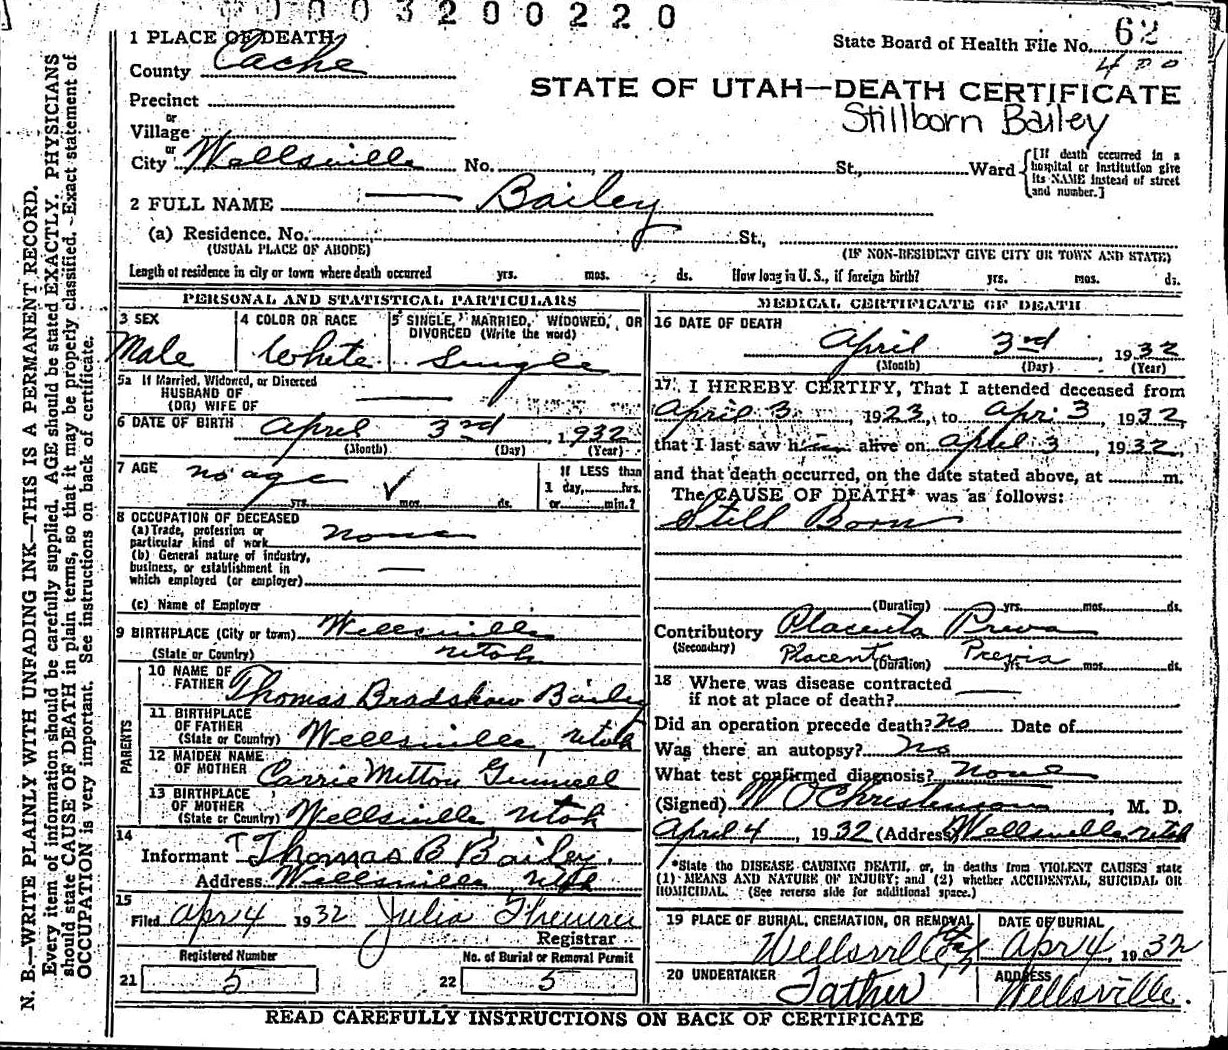 0003200220
1 PLACE OF DEATH
County Cache
State Board of Health File No. 62
400
Precinct
STATE OF UTAH—DEATH CERTIFICATE
or
Village
Stillborn Bailey
or
City Wellsville No. St., Ward
[If death occurred in a hospital or institution give its NAME instead of street and number.]
2 FULL NAME — Bailey
(a) Residence. No. St.,
(USUAL PLACE OF ABODE) (IF NON-RESIDENT GIVE CITY OR TOWN AND STATE)
Length of residence in city or town where death occurred yrs. mos. ds. How long in U. S., if foreign birth? yrs. mos. ds.
PERSONAL AND STATISTICAL PARTICULARS
3 SEX
Male
4 COLOR OR RACE
White
5 SINGLE, MARRIED, WIDOWED, OR
DIVORCED (Write the word)
Single
5a If Married, Widowed, or Divorced
HUSBAND OF
(OR) WIFE OF —
6 DATE OF BIRTH April 3rd, 1932
(Month) (Day) (Year)
7 AGE no age
yrs. ✓ mos. ds.
If LESS than
1 day, hrs.
or min.?
8 OCCUPATION OF DECEASED
(a) Trade, profession or
particular kind of work none
(b) General nature of industry,
business, or establishment in
which employed (or employer) —
(c) Name of Employer
9 BIRTHPLACE (City or town) Wellsville
(State or Country) Utah
PARENTS
10 NAME OF
FATHER Thomas Bradshaw Bailey
11 BIRTHPLACE
OF FATHER
(State or Country) Wellsville, Utah
12 MAIDEN NAME
OF MOTHER Carrie Mitton Gunnell
13 BIRTHPLACE
OF MOTHER
(State or Country) Wellsville Utah
14
Informant Thomas B Bailey.
Address Wellsville Utah
15
Filed Apr 4 1932 Julia
Registrar
Registered Number
21 5
No. of Burial or Removal Permit
22 5
MEDICAL CERTIFICATE OF DEATH
16 DATE OF DEATH
April 3rd, 1932
(Month) (Day) (Year)
17 I HEREBY CERTIFY, That I attended deceased from
April 3, 1923, to Apr. 3, 1932,
that I last saw him alive on April 3, 1932,
and that death occurred, on the date stated above, at m.
The CAUSE OF DEATH* was as follows:
Still Born
(Duration) yrs. mos. ds.
Contributory Placenta Preva
(Secondary) Placenta Previa
(Duration) yrs. mos. ds.
18 Where was disease contracted
if not at place of death? —
Did an operation precede death? no Date of
Was there an autopsy? no
What test confirmed diagnosis? none
(Signed) W O Christensen, M. D.
April 4, 1932 (Address) Wellsville Utah
*State the DISEASE CAUSING DEATH, or, in deaths from VIOLENT CAUSES state
(1) MEANS AND NATURE OF INJURY; and (2) whether ACCIDENTAL, SUICIDAL OR
HOMICIDAL. (See reverse side for additional space.)
19 PLACE OF BURIAL, CREMATION, OR REMOVAL
Wellsville
DATE OF BURIAL
Apr 4, 1932
20 UNDERTAKER
Father
ADDRESS
Wellsville.
READ CAREFULLY INSTRUCTIONS ON BACK OF CERTIFICATE
N. B.—WRITE PLAINLY WITH UNFADING INK—THIS IS A PERMANENT RECORD.
Every item of information should be carefully supplied. AGE should be stated EXACTLY. PHYSICIANS
should state CAUSE OF DEATH in plain terms, so that it may be properly classified. Exact statement of
OCCUPATION is very important. See instructions on back of certificate.